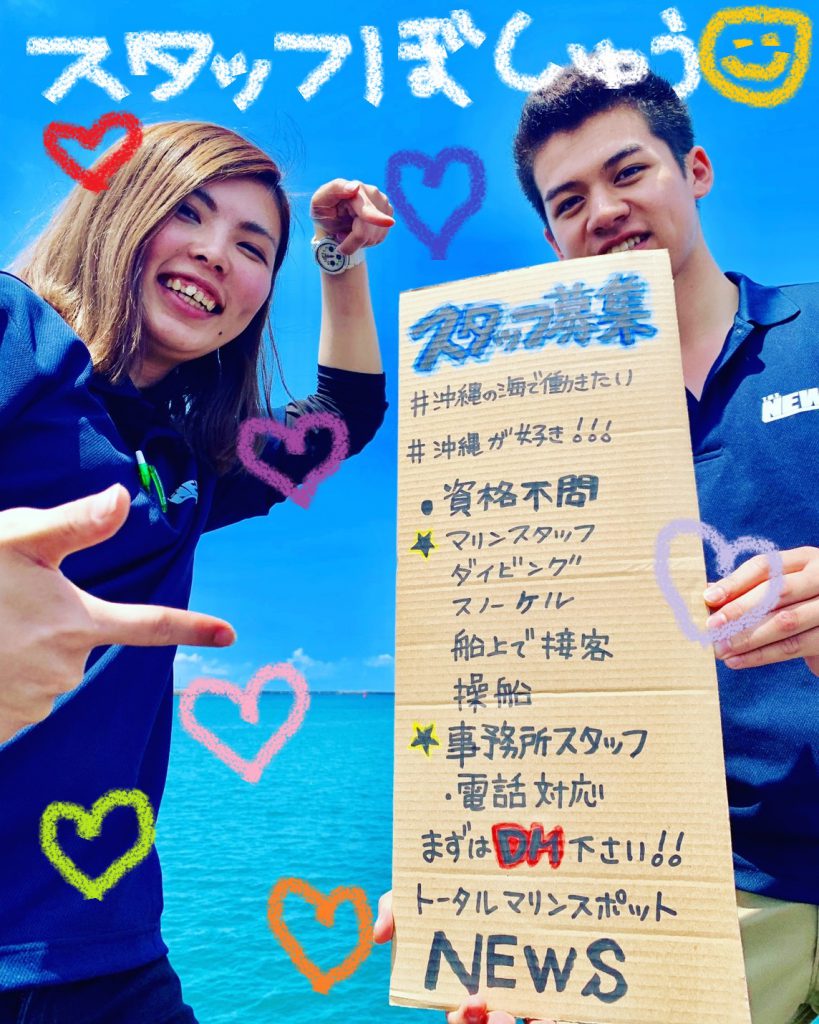 スタッフぼしゅう
スタッフ募集
#沖縄の海で働きたい
#沖縄が好き!!!
・資格不問
★マリンスタッフ
ダイビング
スノーケル
船上で接客
操船
★事務所スタッフ
・電話対応
まずはDM下さい!!
トータルマリンスポット
NEWS
NEW